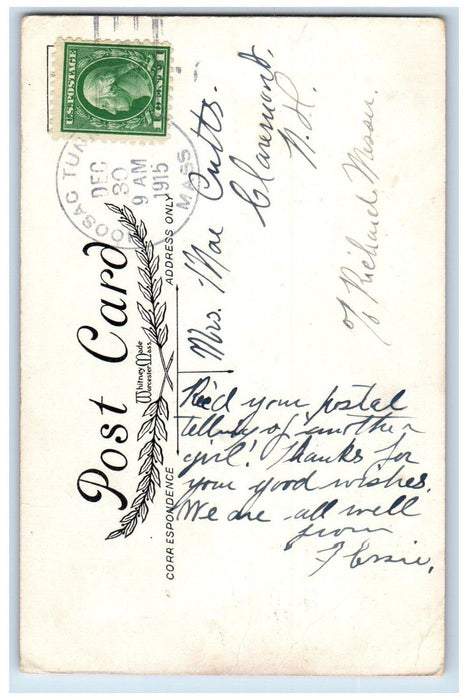 U.S. POSTAGE
1 CENT 1
HOOSAC TUN
MASS
DEC
30
9 AM
1915
Post Card
Whitney Made
Worcester, Mass.
CORRESPONDENCE
ADDRESS ONLY
Mrs. Mae Cutts.
Claremont,
N.H.
℅ Richard
Rec'd your postal
telling of another
girl! Thanks for
your good wishes.
We are all well
from